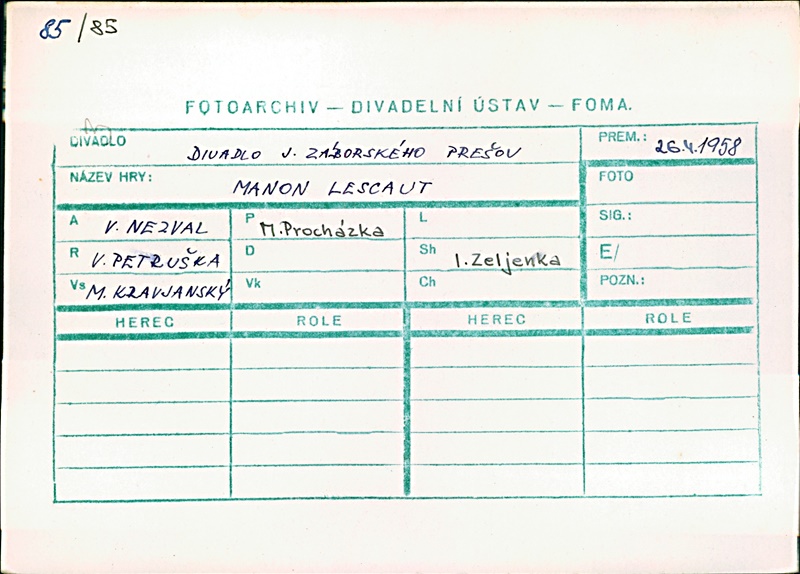 85/85
FOTOARCHIV — DIVADELNÍ ÚSTAV — FOMA.
DIVADLO DIVADLO J. ZÁBORSKÉHO PREŠOV PREM.: 26.4.1958
NÁZEV HRY: MANON LESCAUT FOTO
A V. NEZVAL P M.Procházka L SIG.:
R V. PETRUŠKA D Sh I.Zeljenka E/
Vs M. KRAVJANSKÝ Vk Ch POZN.:
HEREC ROLE HEREC ROLE